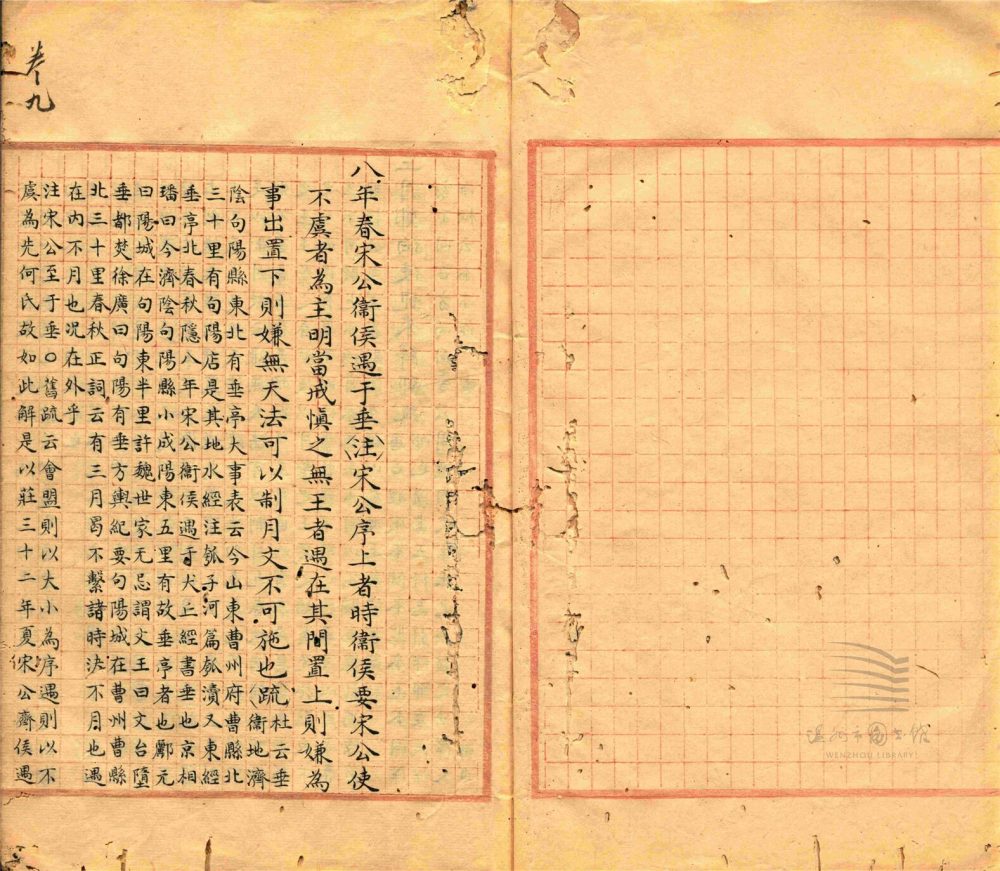 卷九
八年春宋公衞侯遇于垂(注)宋公序上者時衞侯要宋公使
不虞者為主明當戒慎之無王者遇在其間置上則嫌為
事出置下則嫌無天法可以制月文不可施也(疏)杜云垂
衞地濟
陰句陽縣東北有垂亭大事表云今山東曹州府曹縣北
三十里有句陽店是其地水經注瓠子河篇瓠瀆又東經
垂亭北春秋隱八年宋公衞侯遇于犬丘經書垂也京相
璠曰今濟陰句陽縣小成陽東五里有故垂亭者也酈元
曰陽城在句陽東半里許魏世家无忌謂文王曰文台墮
垂都焚徐廣曰句陽有垂方輿紀要句陽城在曹州曹縣
北三十里春秋正詞云有三月曷不繫諸時決不月也遇
在內不月也况在外乎
注宋公至于垂○舊疏云會盟則以大小為序遇則以不
虞為先何氏故如此解是以莊三十二年夏宋公齊侯遇
溫州市圖書館
WENZHOU LIBRARY